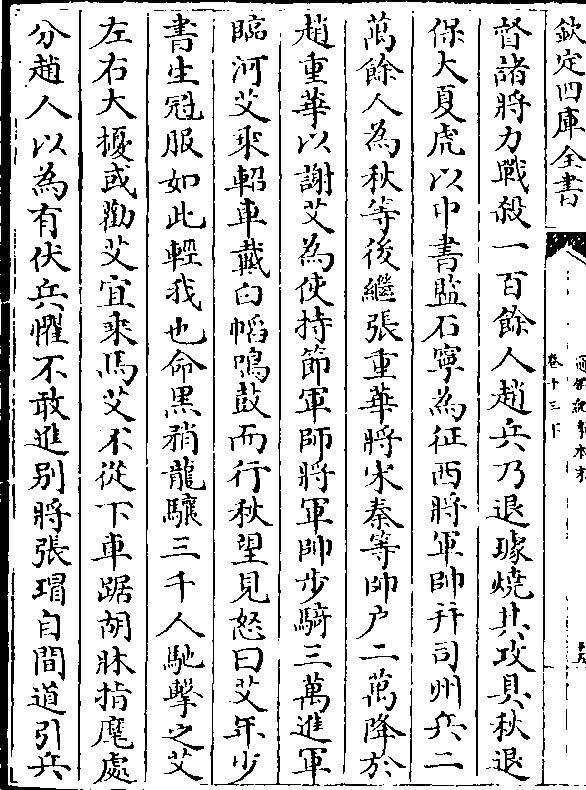 欽定四庫全書
卷十三下
督諸將力戰殺一百餘人趙兵乃退璩燒其攻具秋退
保大夏虎以中書監石寧為征西將軍帥并司州兵二
萬餘人為秋等後繼張重華將宋秦等帥户二萬降於
趙重華以謝艾為使持節軍師將軍帥步騎三萬進軍
臨河艾乘軺車戴白㡌鳴鼓而行秋望見怒曰艾年少
書生冠服如此輕我也命黒矟龍驤三千人馳擊之艾
左右大擾或勸艾宜乘馬艾不從下車踞胡牀指麾處
分趙人以為有伏兵懼不敢進别將張瑁自間道引兵